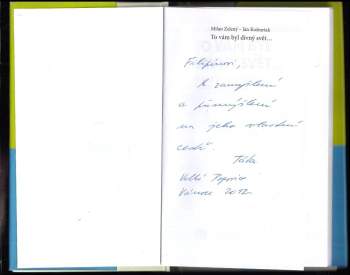 Milan Zelený – Jan Košturiak
To vám byl divný svět...
Filipínovi,
k zamyšlení
a přemýšlení
na jeho vlastní
cestě.
Táta
Velké Popovice
Vánoce 2012